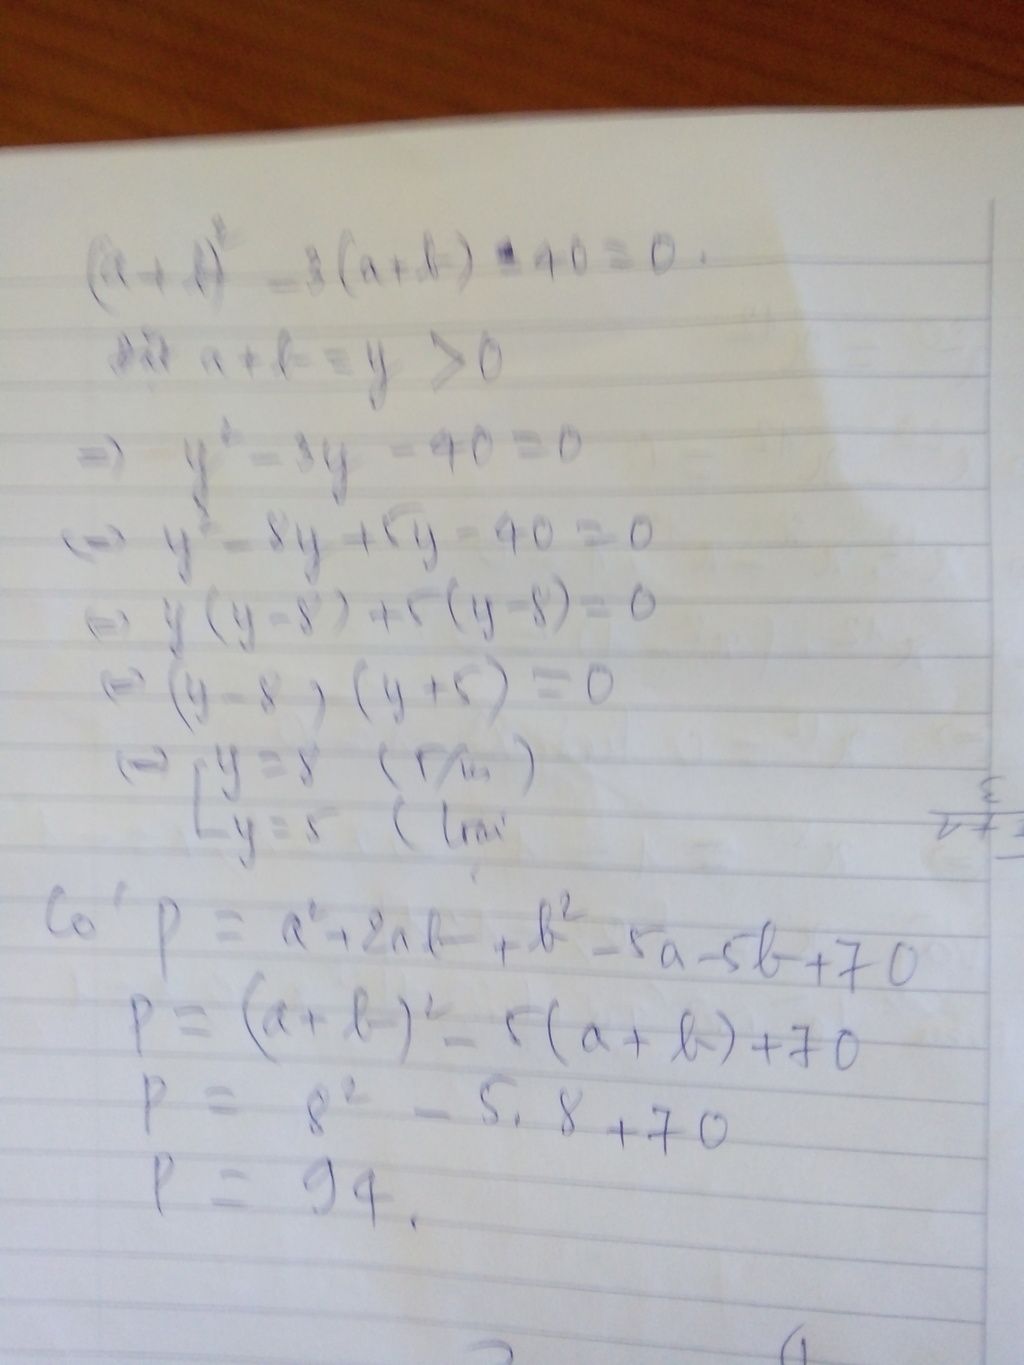 (a+b)² - 3(a+b) - 40 = 0.
Đặt a+b = y > 0
=> y² - 3y - 40 = 0
<=> y² - 8y + 5y - 40 = 0
<=> y(y-8) + 5(y-8) = 0
<=> (y-8)(y+5) = 0
<=> [y = 8 (T/m)
y = 5 (
Có P = a² + 2ab + b² - 5a - 5b + 70
P = (a+b)² - 5(a+b) + 70
P = 8² - 5.8 + 70
P = 94.